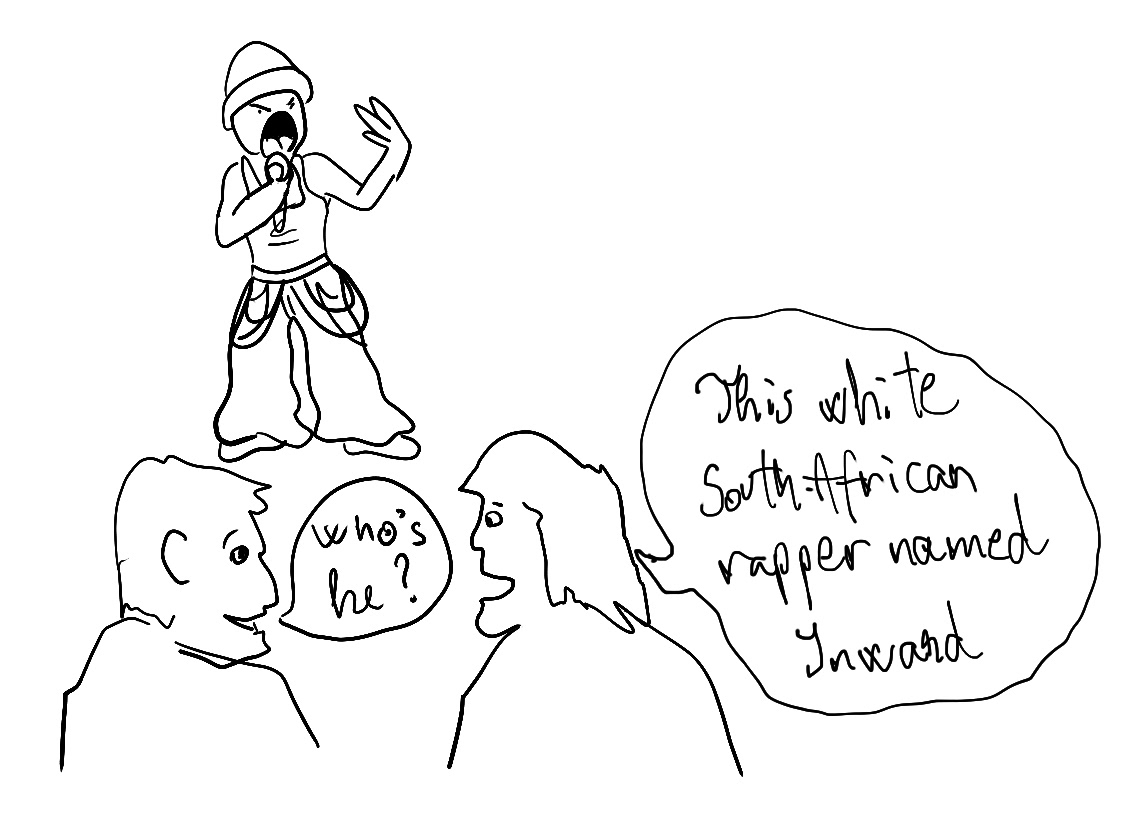 who's
he?
This white
South-African
rapper named
Inward